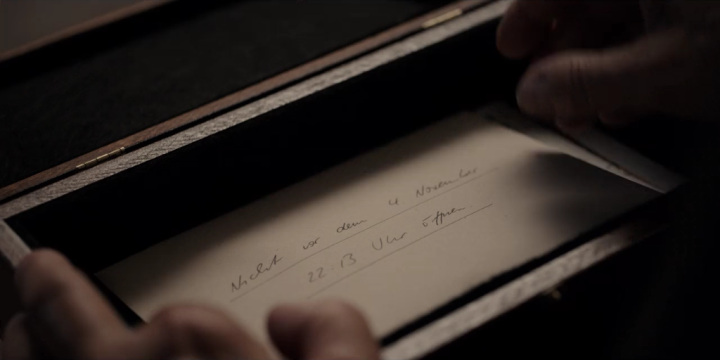 Nicht vor dem 4 November
22:13 Uhr öffnen.